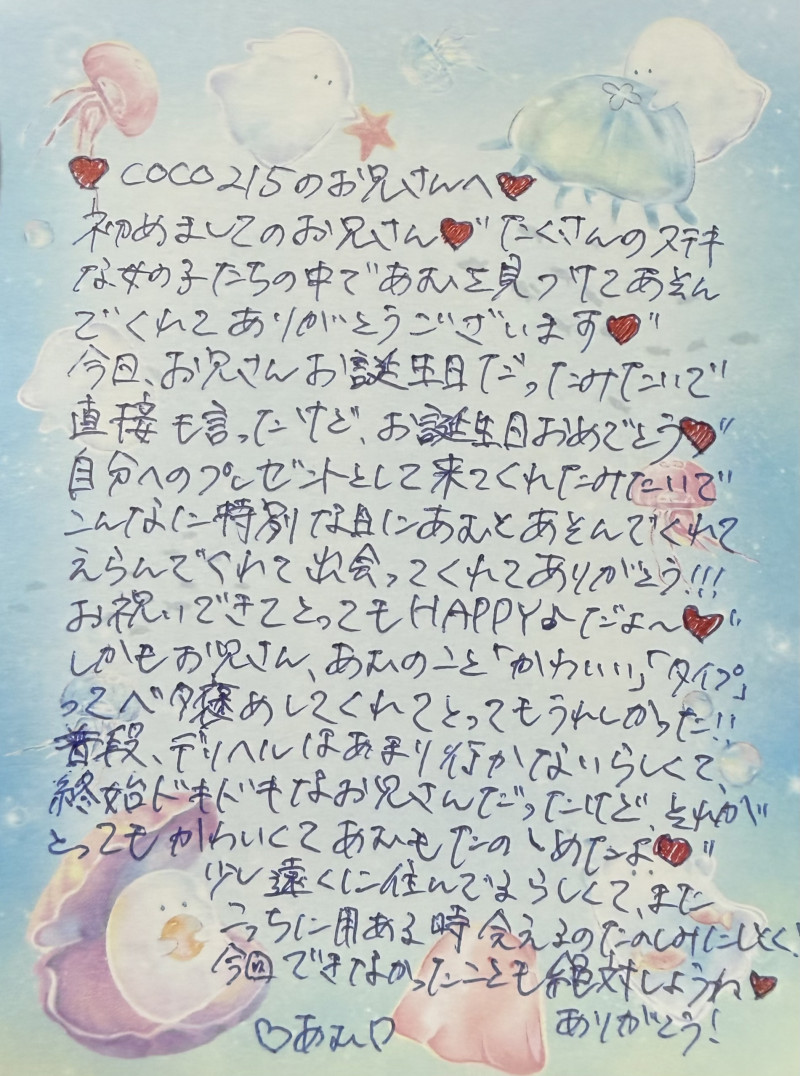 ♥COCO215のお兄さんへ♥
初めましてのお兄さん♥"たくさんのステキ
な女の子たちの中であむを見つけてあそん
でくれてありがとうございます♥"
今日、お兄さんお誕生日だったみたいで
直接も言ったけど、お誕生日おめでとう♥"
自分へのプレゼントとして来てくれたみたいで
こんなに特別な日にあむとあそんでくれて
えらんでくれて出会ってくれてありがとう!!!
お祝いできてとってもHAPPY♪だよ〜♥"
しかもお兄さん、あむのこと「かわいい」「タイプ」
ってベタ褒めしてくれてとってもうれしかった!!
普段、デリヘルはあまり行かないらしくて、
終始ドキドキなお兄さんだったけど、それが
とってもかわいくてあむもたのしめたよ♥"
少し遠くに住んでるらしくて、また
こっちに用ある時会えるのたのしみにしとく!
今回できなかったことも絶対しようね♥
♡あむ♡ ありがとう!